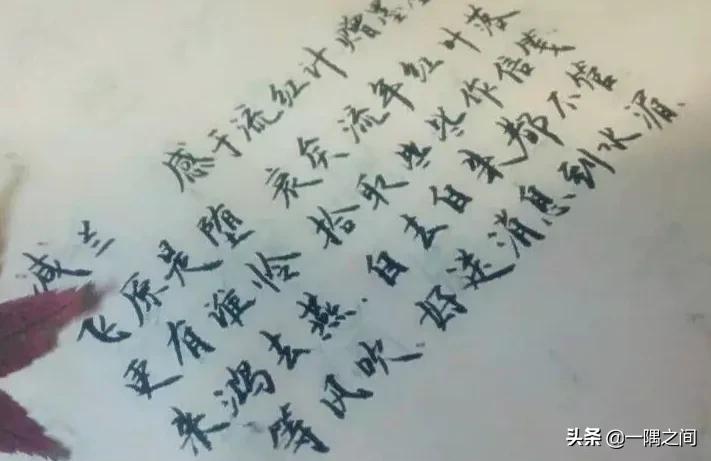 减兰 感于流红计赠墨
飞原是堕 流年红叶落
更有谁怜 拾取些些作信笺
来鸿去燕.自去自来都不管
等风吹.好送消息到水湄.
头条 @一隅之间